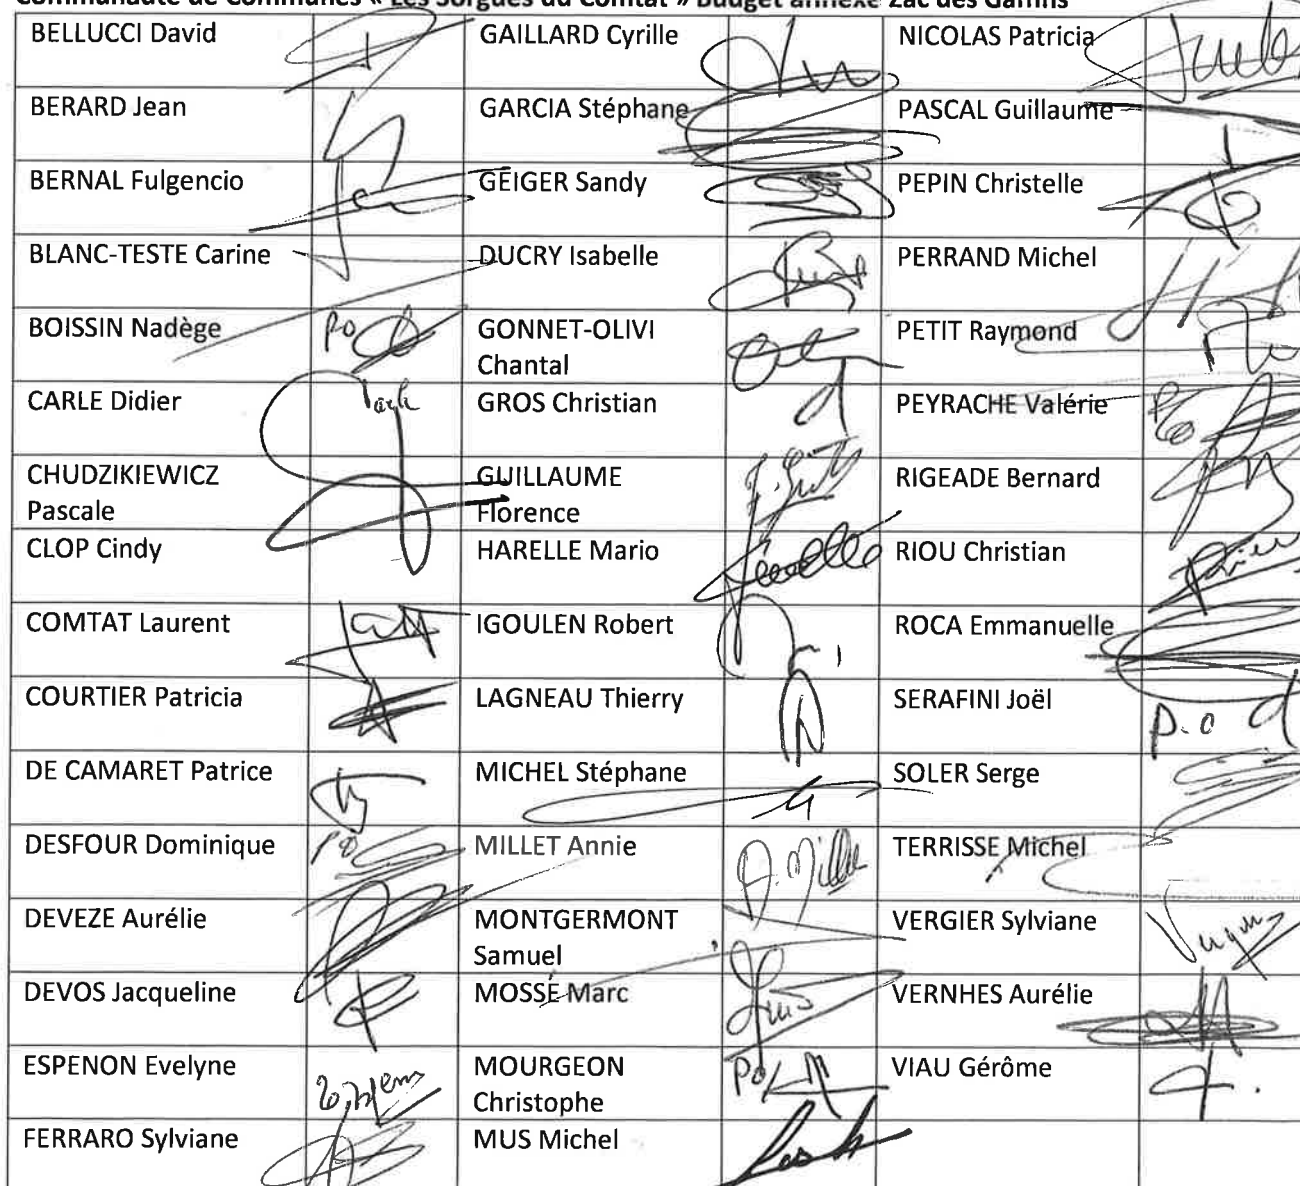 Communauté de Communes « Les Sorgues du Comtat » Budget annexe Zac des Gaffins
BELLUCCI David GAILLARD Cyrille NICOLAS Patricia
BERARD Jean GARCIA Stéphane PASCAL Guillaume
BERNAL Fulgencio GEIGER Sandy PEPIN Christelle
BLANC-TESTE Carine DUCRY Isabelle PERRAND Michel
BOISSIN Nadège Po GONNET-OLIVI PETIT Raymond
Chantal
CARLE Didier GROS Christian PEYRACHE Valérie Po
CHUDZIKIEWICZ GUILLAUME RIGEADE Bernard
Pascale Florence
CLOP Cindy HARELLE Mario RIOU Christian
COMTAT Laurent IGOULEN Robert ROCA Emmanuelle
COURTIER Patricia LAGNEAU Thierry SERAFINI Joël P.O
DE CAMARET Patrice MICHEL Stéphane SOLER Serge
DESFOUR Dominique Po MILLET Annie A. Millet TERRISSE Michel
DEVEZE Aurélie MONTGERMONT VERGIER Sylviane
Samuel
DEVOS Jacqueline MOSSÉ Marc VERNHES Aurélie
ESPENON Evelyne MOURGEON Po VIAU Gérôme
Christophe
FERRARO Sylviane MUS Michel